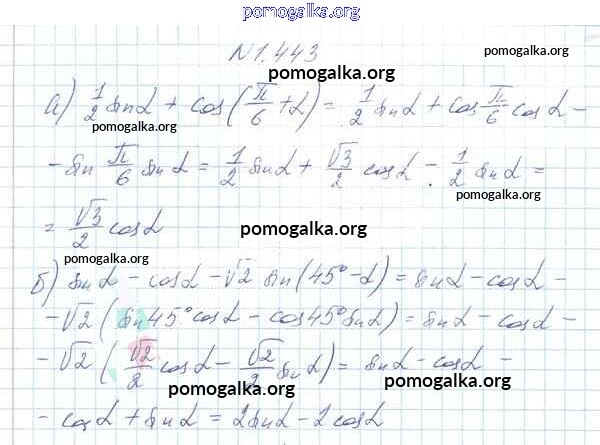 pomogalka.org
N 1.443
pomogalka.org
а) 1/2 sin α + cos(π/6 + α) = 1/2 sin α + cos π/6 cos α –
pomogalka.org
– sin π/6 sin α = 1/2 sin α + √3/2 cos α – 1/2 sin α =
pomogalka.org
= √3/2 cos α
pomogalka.org
pomogalka.org
б) sin α – cos α – √2 sin(45° – α) = sin α – cos α –
– √2 (sin 45° cos α – cos 45° sin α) = sin α – cos α –
pomogalka.org
– √2 (√2/2 cos α – √2/2 sin α) = sin α – cos α –
pomogalka.org
pomogalka.org
– cos α + sin α = 2 sin α – 2 cos α